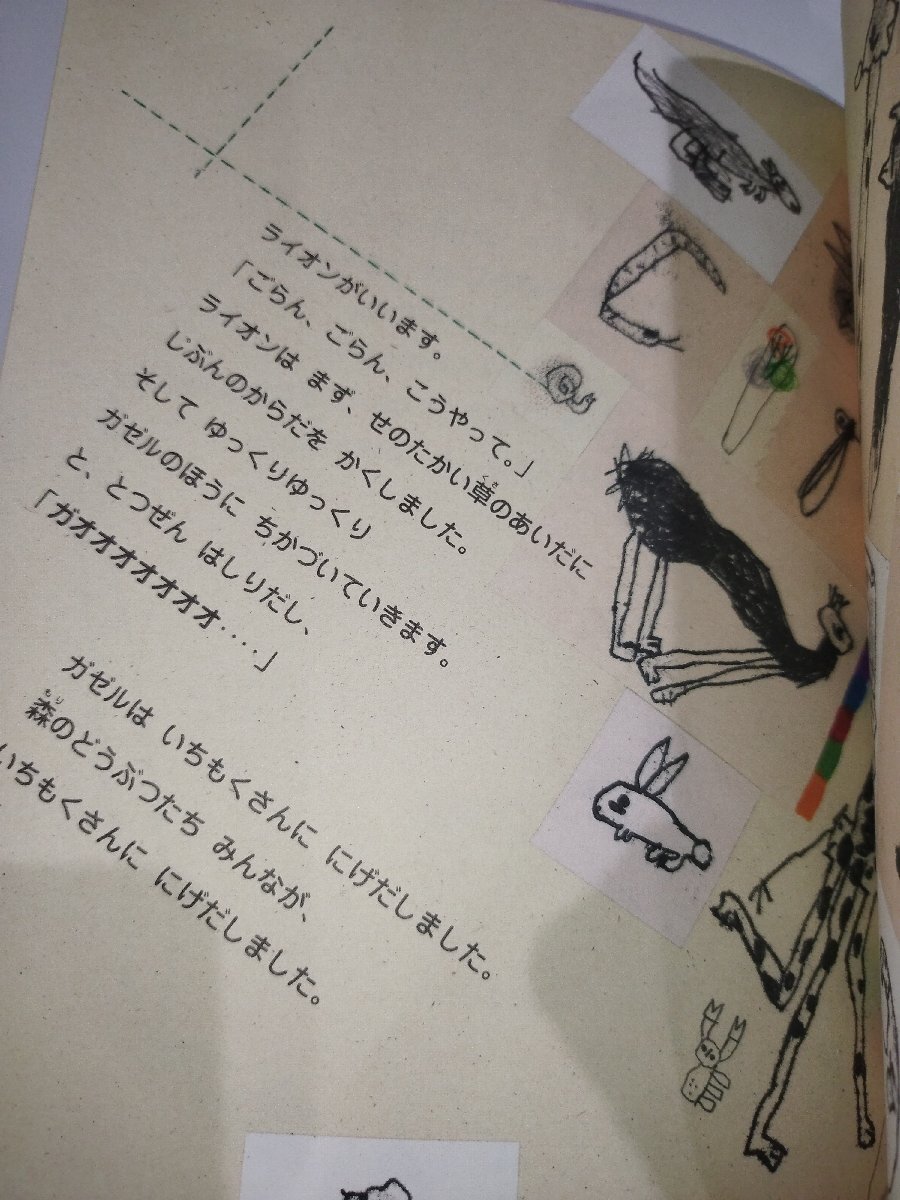 ライオンがいいます。
「ごらん、ごらん、こうやって。」
ライオンは まず、せのたかい草のあいだに
じぶんのからだを かくしました。
そして ゆっくりゆっくり
ガゼルのほうに ちかづいていきます。
と、とつぜん はしりだし、
「ガオオオオオオオ・・・・」
ガゼルは いちもくさんに にげだしました。
森のどうぶつたち みんなが、
いちもくさんに にげだしました。